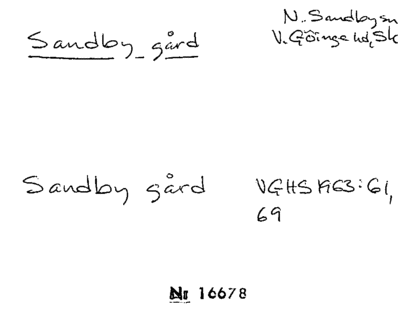 Sandby gård
N. Sandby sn
V. Göinge hd, Sk
Sandby gård
VGHS 1963: 61,
69
Nr 16678